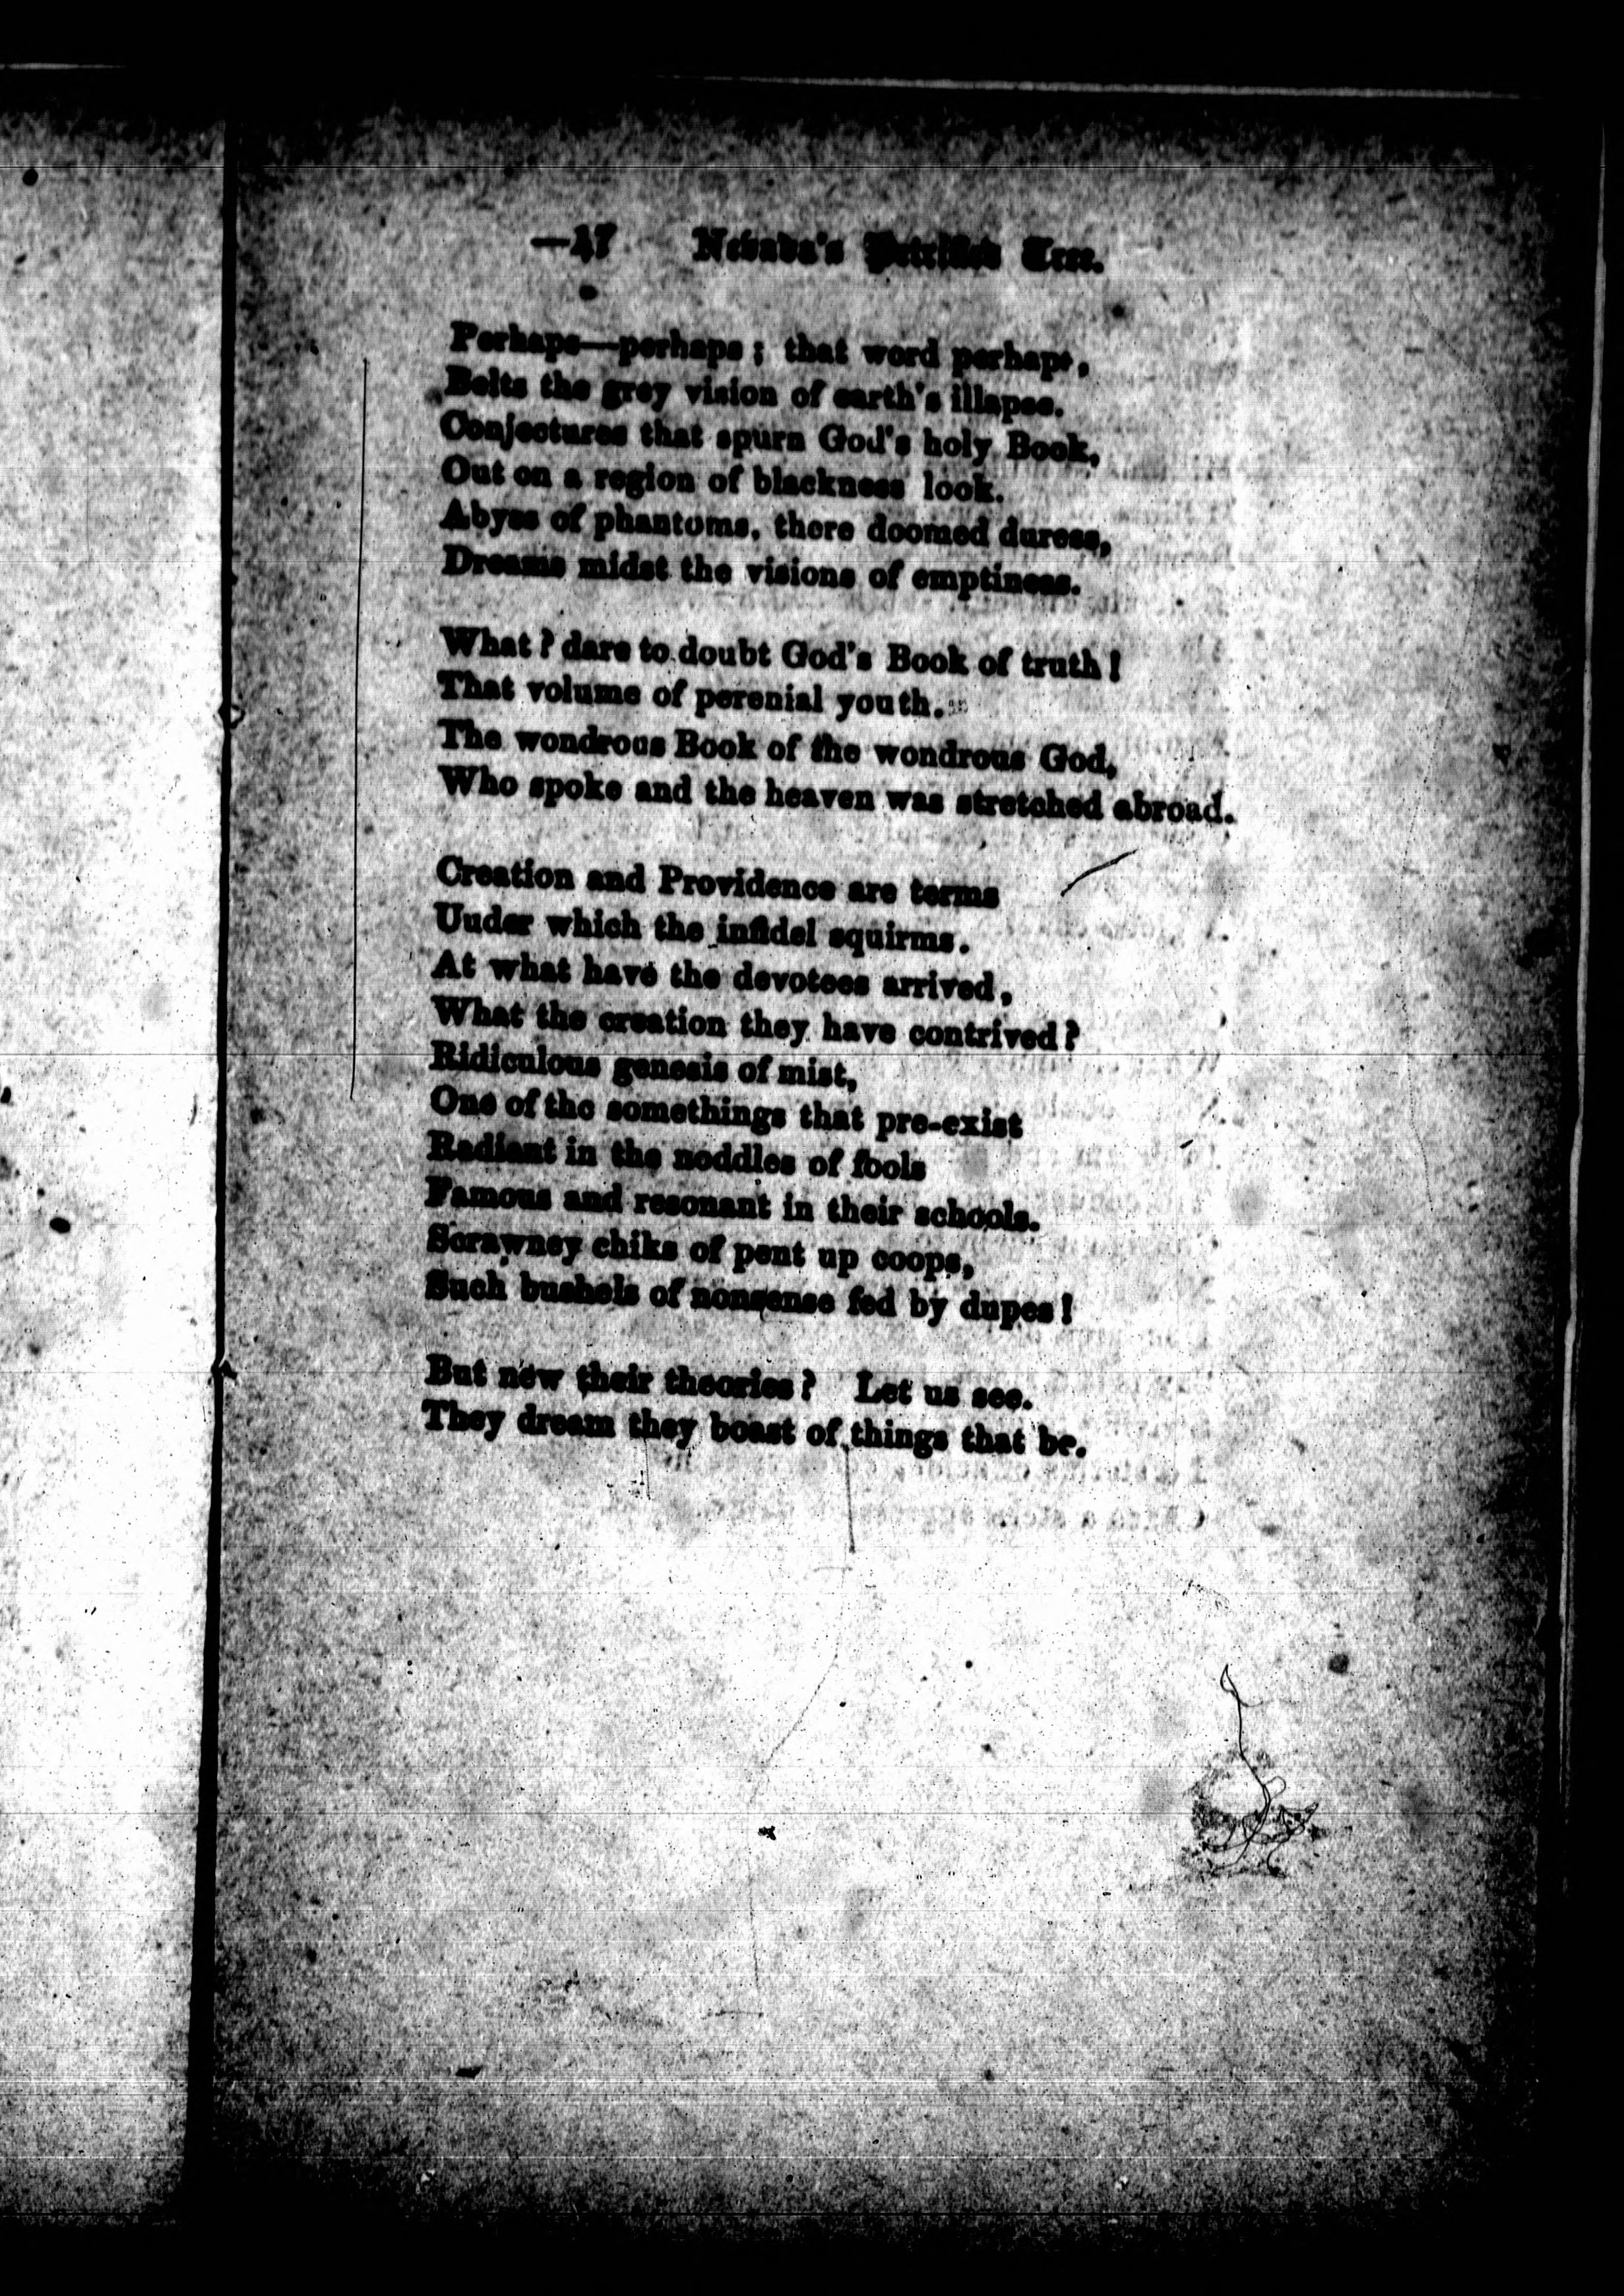 —47 Nevada's Petrified Tree.
Perhaps—perhaps; that word perhaps,
Belts the grey vision of earth's illapse.
Conjectures that spurn God's holy Book,
Out on a region of blackness look.
Abyss of phantoms, there doomed duress,
Dreams midst the visions of emptiness.
What? dare to doubt God's Book of truth!
That volume of perenial youth.
The wondrous Book of the wondrous God,
Who spoke and the heaven was stretched abroad.
Creation and Providence are terms
Uuder which the infidel squirms.
At what have the devotees arrived,
What the creation they have contrived?
Ridiculous genesis of mist,
One of the somethings that pre-exist
Radiant in the noddles of fools
Famous and resonant in their schools.
Scrawney chiks of pent up coops,
Such bushels of nonsense fed by dupes!
But new their theories? Let us see.
They dream they boast of things that be.